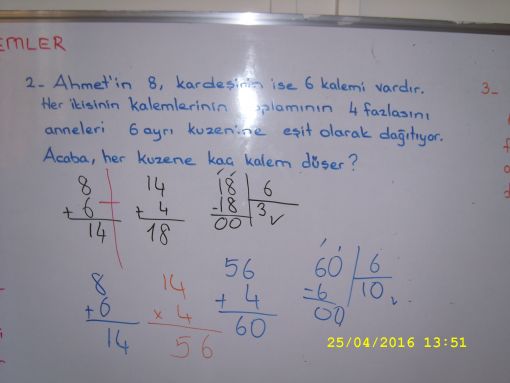 EMLER
2- Ahmet'in 8, kardeşinin ise 6 kalemi vardır.
3-
Her ikisinin kalemlerinin toplamının 4 fazlasını
anneleri 6 ayrı kuzenine eşit olarak dağıtıyor.
Acaba, her kuzene kaç kalem düşer?
8 14 18 6
+ 6 + 4 -18 3
14 18 00
8 14 56 60 6
+6 x 4 + 4 -6 10
14 56 60 00
25/04/2016 13:51